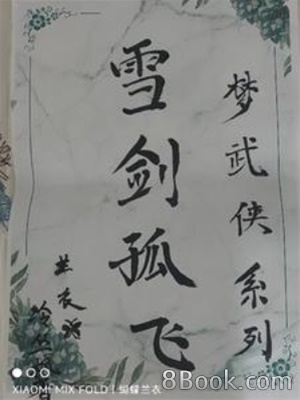 梦武侠系列
雪剑孤飞
兰衣
XIAOMI MIX FOLD | 恒蝶兰衣
8Book.com